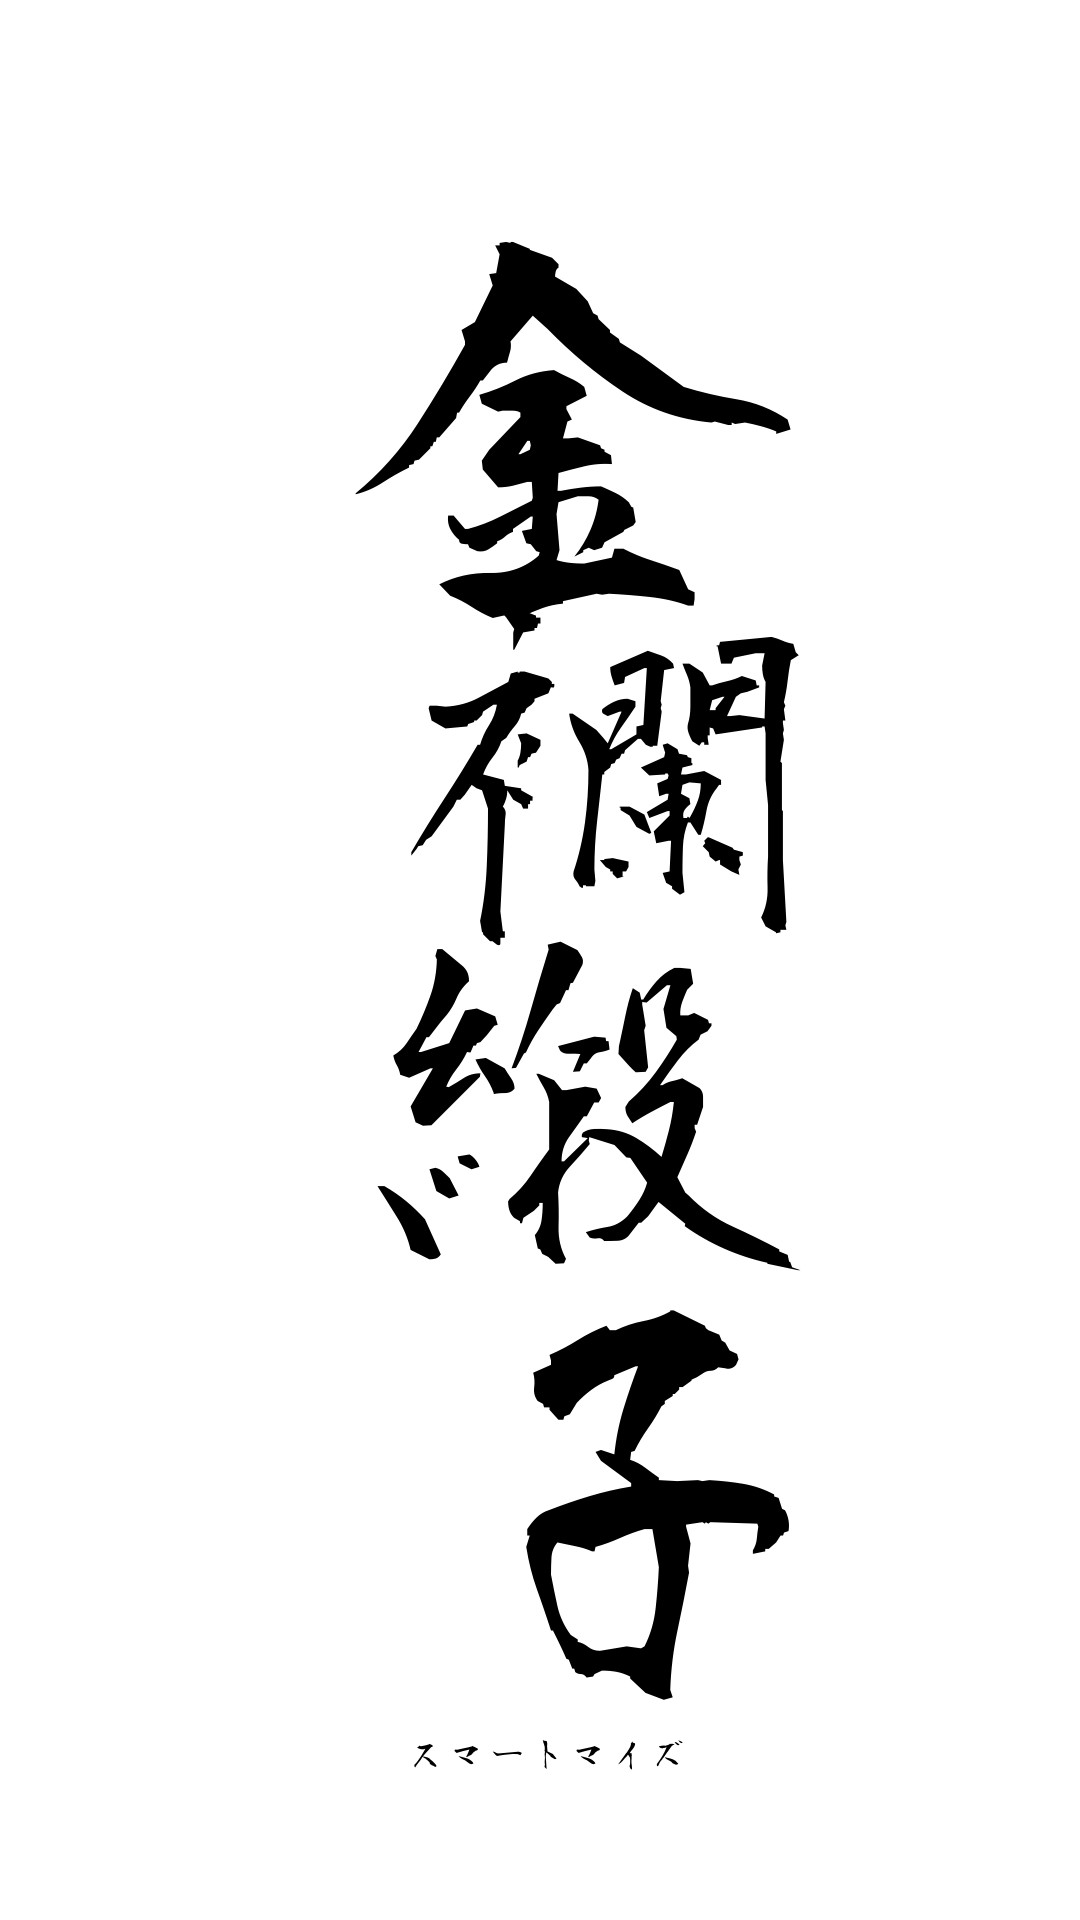 金襴緞子
スマートマイズ